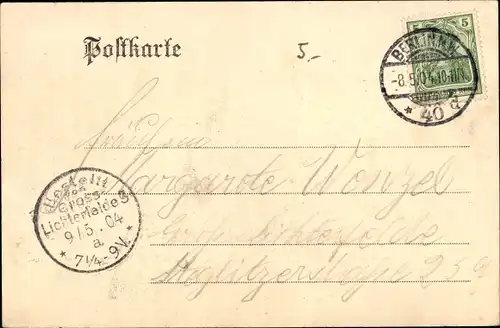 Postkarte
5.-
5 5
BERLIN N.W.
-8.5.04.10-11N.
* 40 d
Fräulein
Margarete Wenzel
Groß Lichterfelde
Steglitzerstraße 25a
Bestellt
Gross-
Lichterfelde
9/5.04
a.
* 7¼-9V. *